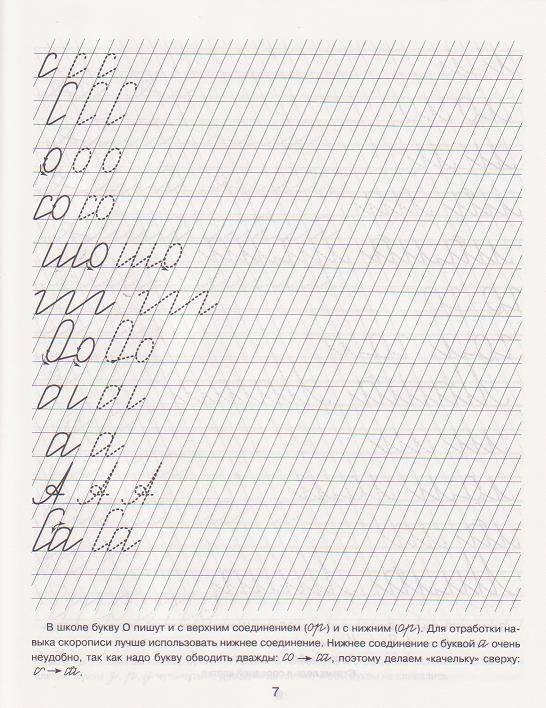 с с с
С С С
о о о
со со
шо шо
До До
а а
А А А
Са Са
В школе букву О пишут и с верхним соединением (ор) и с нижним (ор). Для отработки на-
выка скорописи лучше использовать нижнее соединение. Нижнее соединение с буквой а очень
неудобно, так как надо букву обводить дважды: со → са, поэтому делаем «качельку» сверху:
7